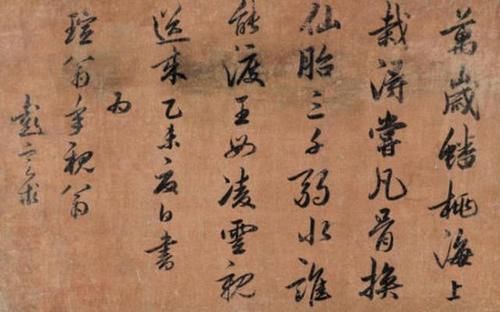 萬歲蟠桃海上
栽得嘗凡骨換
仙胎三千弱水誰
能渡王母凌雲親
送來乙未夏日書
為
瑄翁年親翁
彭定求